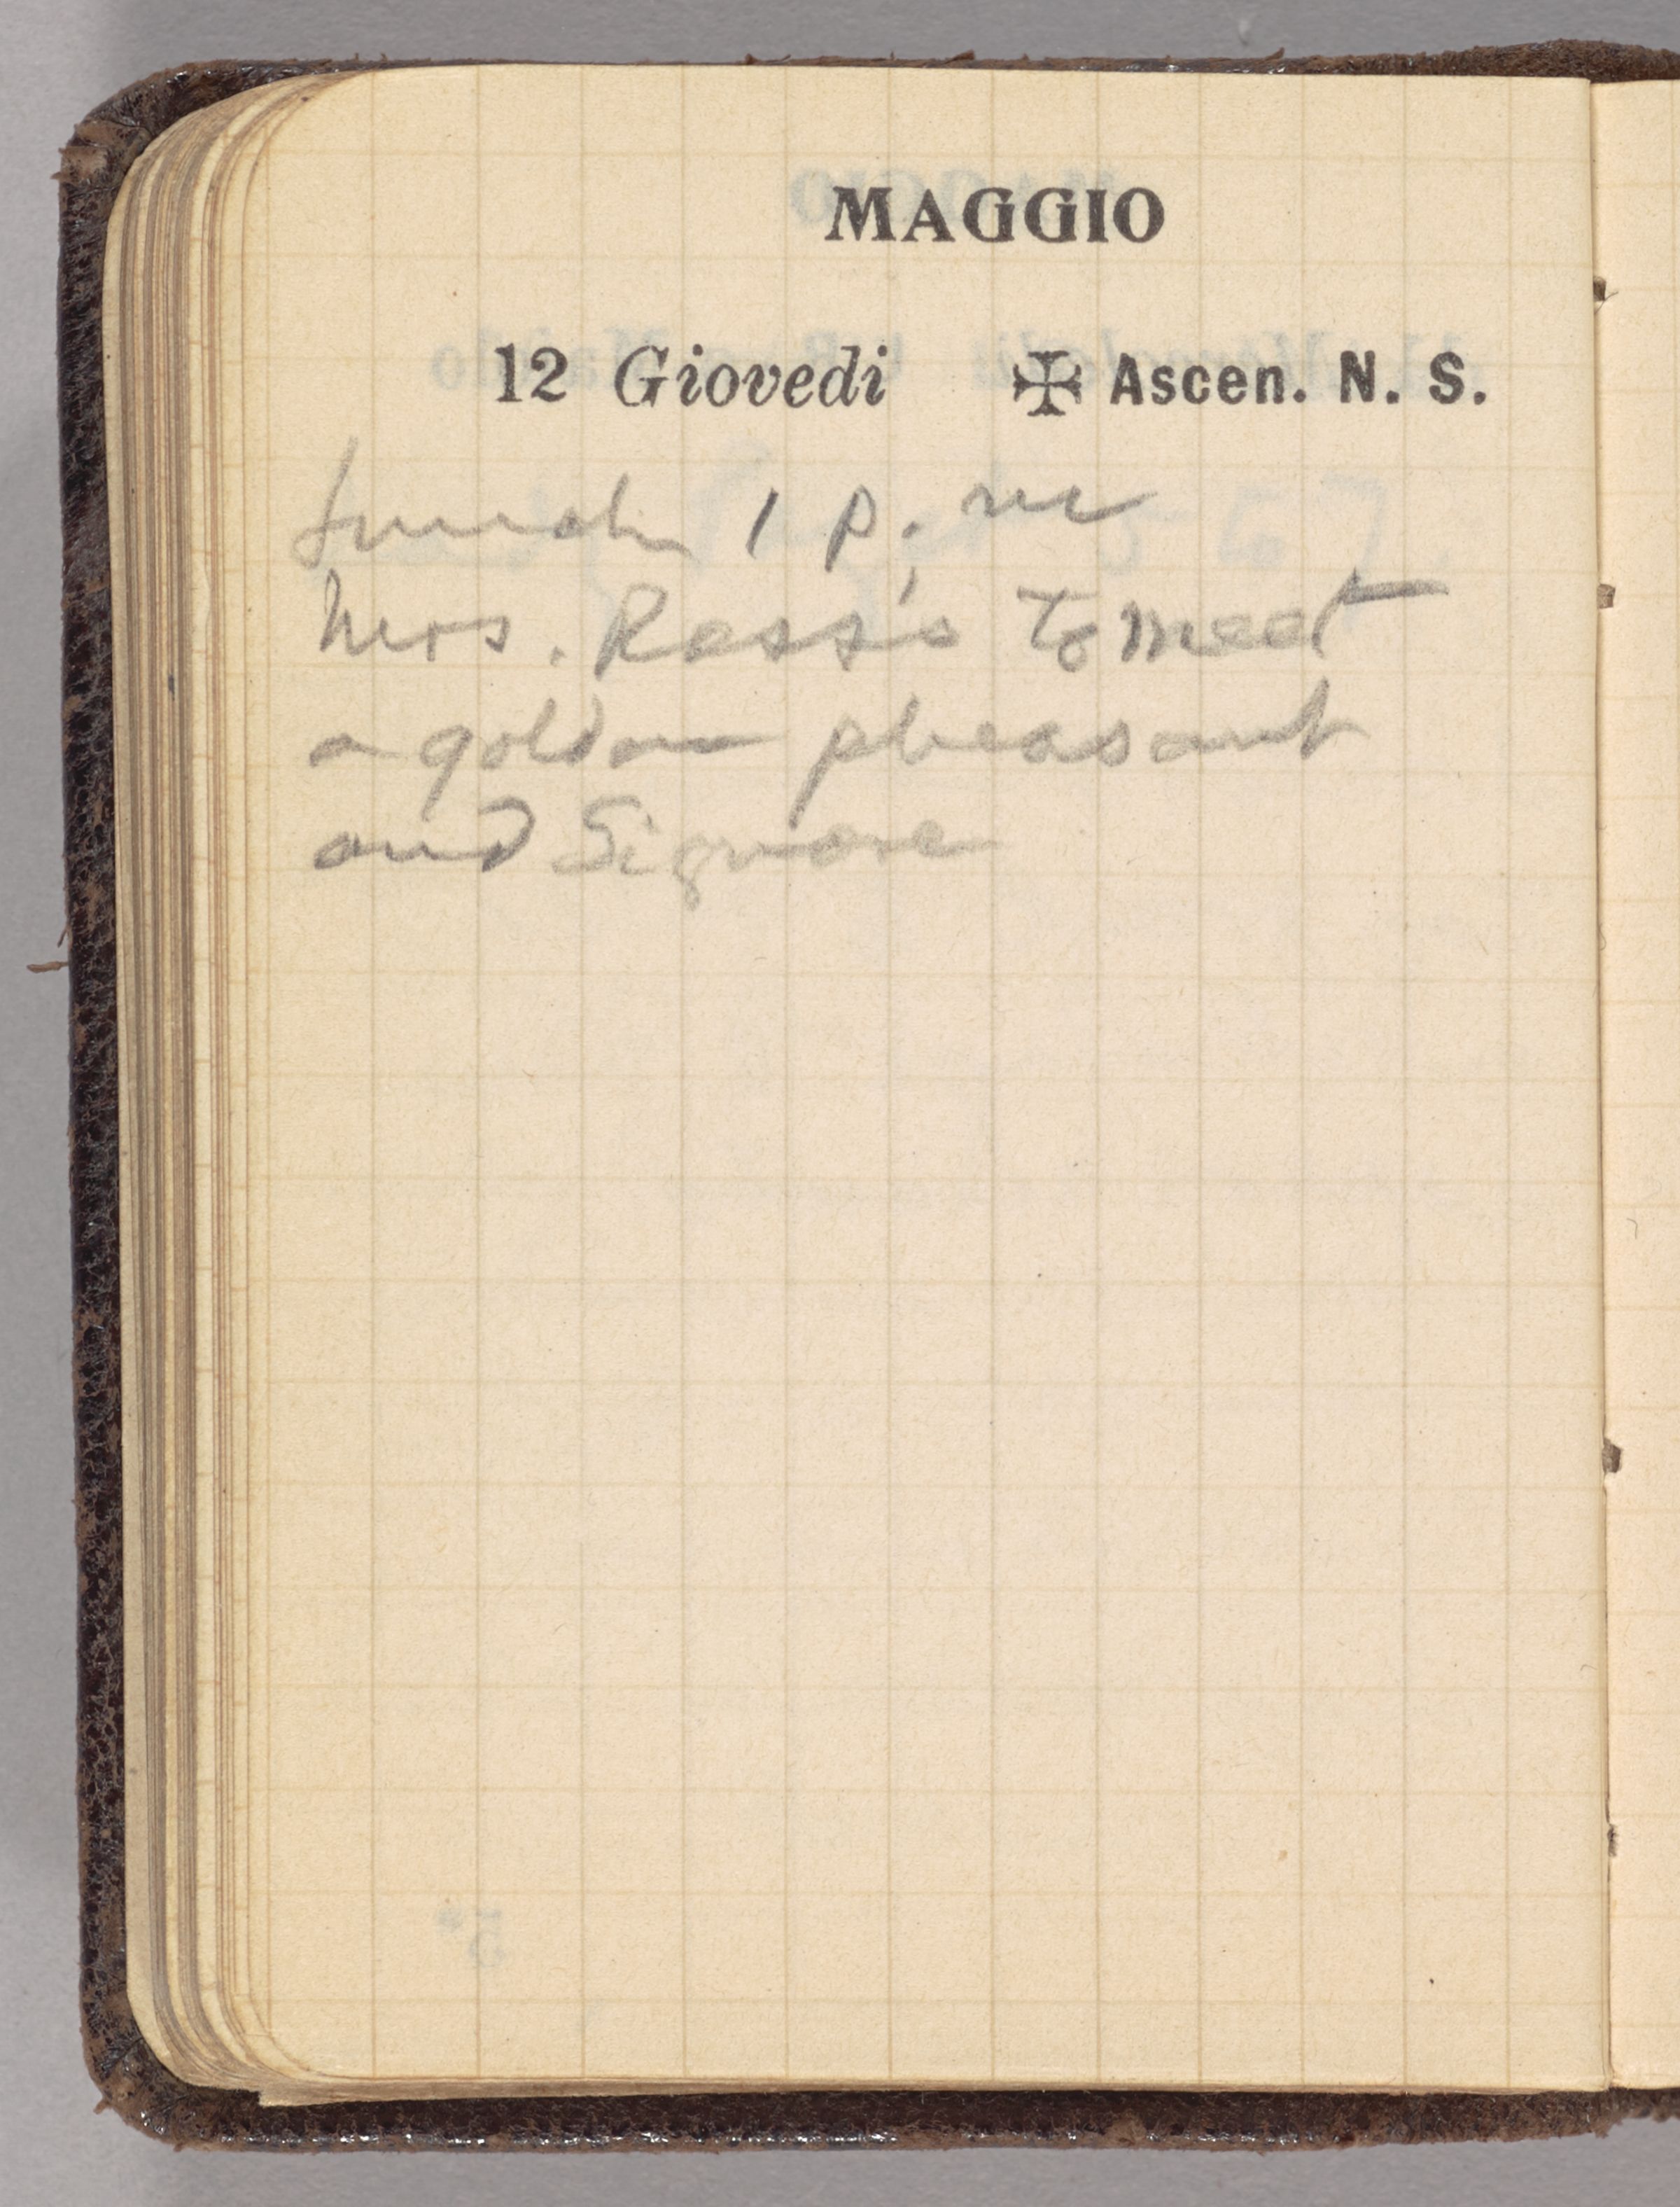 MAGGIO
12 Giovedi ✠ Ascen. N. S.
Lunch 1 p. m
Mrs. Ross's to meet
a golden pheasant
and Signore